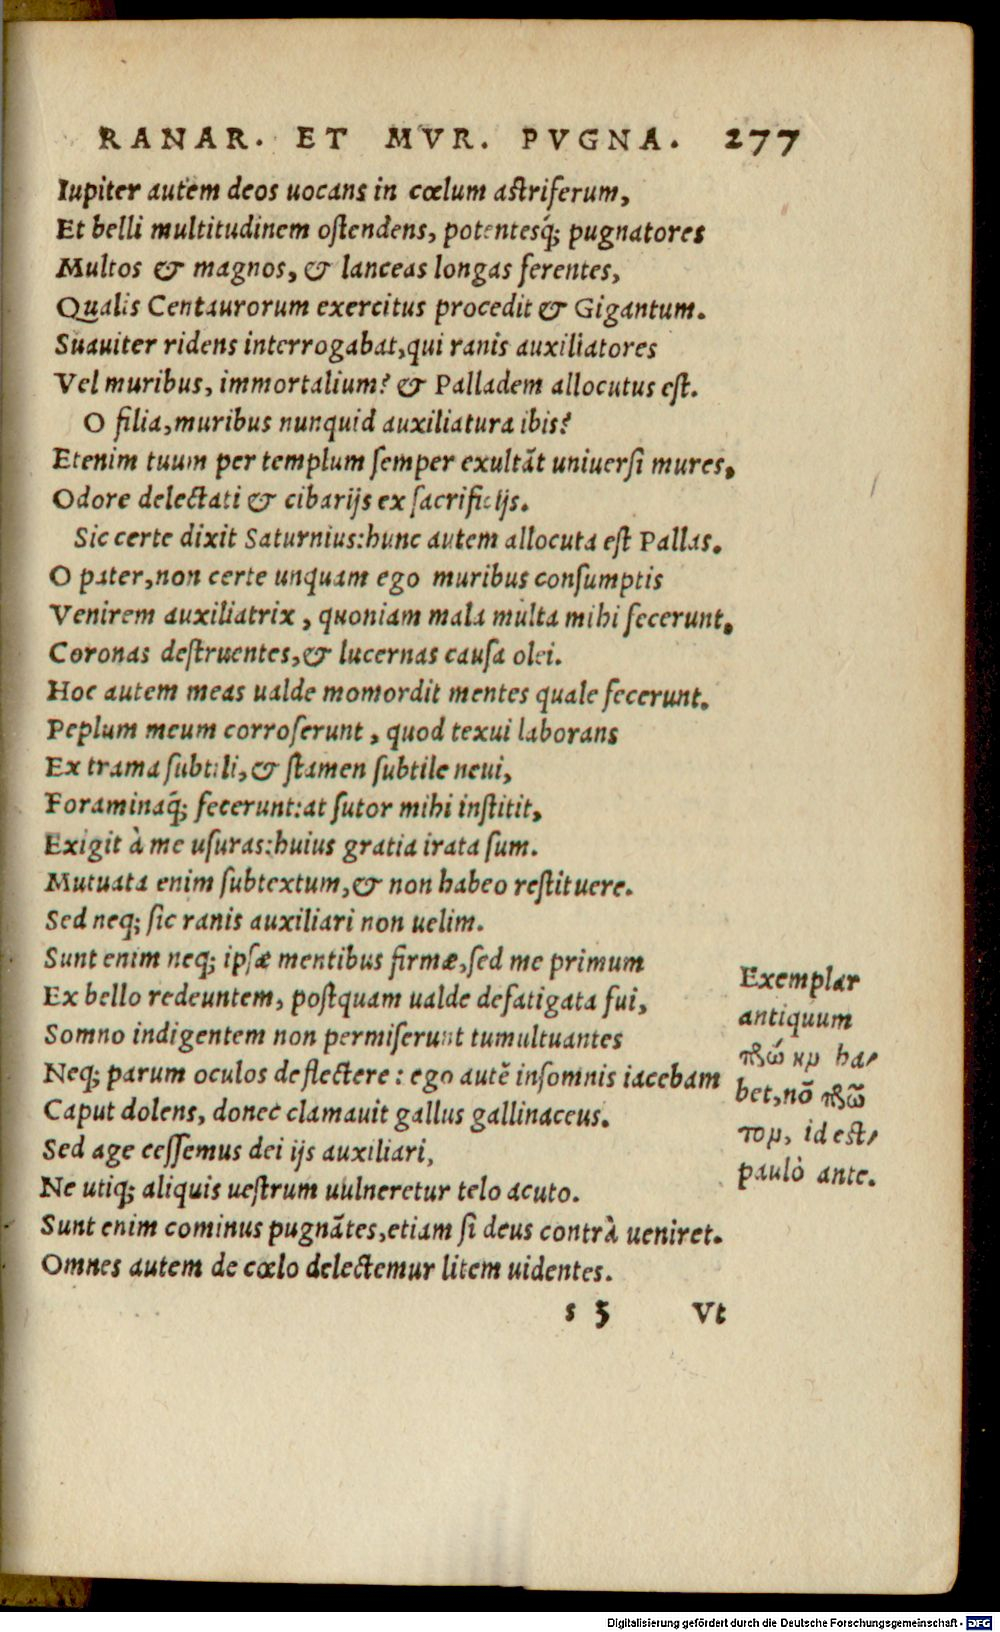 RANAR. ET MVR. PVGNA. 277
Iupiter autem deos uocans in cœlum astriferum,
Et belli multitudinem ostendens, potentesq́; pugnatores
Multos & magnos, & lanceas longas ferentes,
Qualis Centaurorum exercitus procedit & Gigantum.
Suauiter ridens interrogabat, qui ranis auxiliatores
Vel muribus, immortalium? & Palladem allocutus est.
O filia, muribus nunquid auxiliatura ibis?
Etenim tuum per templum semper exultãt uniuersi mures,
Odore delectati & cibarijs ex sacrificijs.
Sic certe dixit Saturnius: hunc autem allocuta est Pallas.
O pater, non certe unquam ego muribus consumptis
Venirem auxiliatrix, quoniam mala multa mihi fecerunt,
Coronas destruentes, & lucernas causa olei.
Hoc autem meas ualde momordit mentes quale fecerunt.
Peplum meum corroserunt, quod texui laborans
Ex trama subtili, & stamen subtile neui,
Foraminaq́; fecerunt: at sutor mihi institit,
Exigit à me usuras: huius gratia irata sum.
Mutuata enim subtextum, & non habeo restituere.
Sed neq; sic ranis auxiliari non uelim.
Sunt enim neq; ipsæ mentibus firmæ, sed me primum
Ex bello redeuntem, postquam ualde defatigata fui,
Somno indigentem non permiserunt tumultuantes
Neq; parum oculos deflectere: ego autẽ insomnis iacebam
Caput dolens, donec clamauit gallus gallinaceus.
Sed age cessemus dei ijs auxiliari,
Ne utiq; aliquis uestrum uulneretur telo acuto.
Sunt enim cominus pugnãtes, etiam si deus contrà ueniret.
Omnes autem de cœlo delectemur litem uidentes.
s 5 Vt
Exemplar
antiquum
ha-
bet, nõ
id est,
paulò ante.
Digitalisierung gefördert durch die Deutsche Forschungsgemeinschaft - DFG